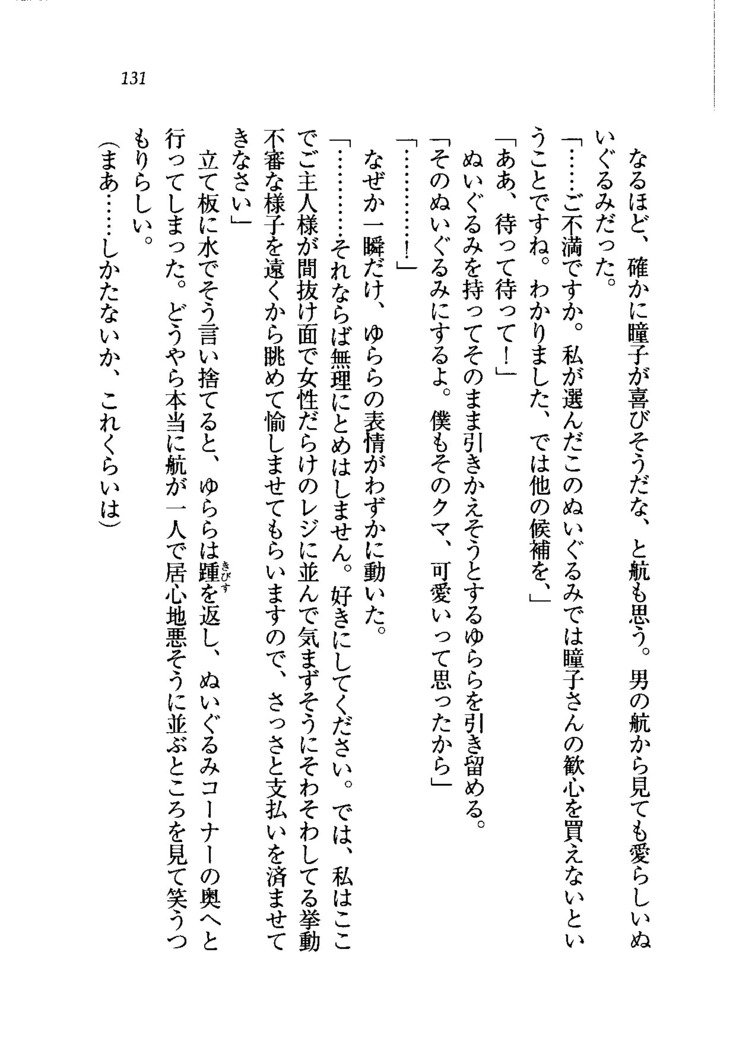 131
なるほど、確かに瞳子が喜びそうだな、と航も思う。男の航から見ても愛らしいぬ
いぐるみだった。
「……ご不満ですか。私が選んだこのぬいぐるみでは瞳子さんの歓心を買えないとい
うことですね。わかりました、では他の候補を、」
「ああ、待って待って！」
ぬいぐるみを持ってそのまま引きかえそうとするゆららを引き留める。
「そのぬいぐるみにするよ。僕もそのクマ、可愛いって思ったから」
「…………！」
なぜか一瞬だけ、ゆららの表情がわずかに動いた。
「…………それならば無理にとめはしません。好きにしてください。では、私はここ
でご主人様が間抜け面で女性だらけのレジに並んで気まずそうにそわそわしてる挙動
不審な様子を遠くから眺めて愉しませてもらいますので、さっさと支払いを済ませて
きなさい」
立て板に水でそう言い捨てると、ゆららは踵きびすを返し、ぬいぐるみコーナーの奥へと
行ってしまった。どうやら本当に航が一人で居心地悪そうに並ぶところを見て笑うつ
もりらしい。
（まあ……しかたないか、これくらいは）